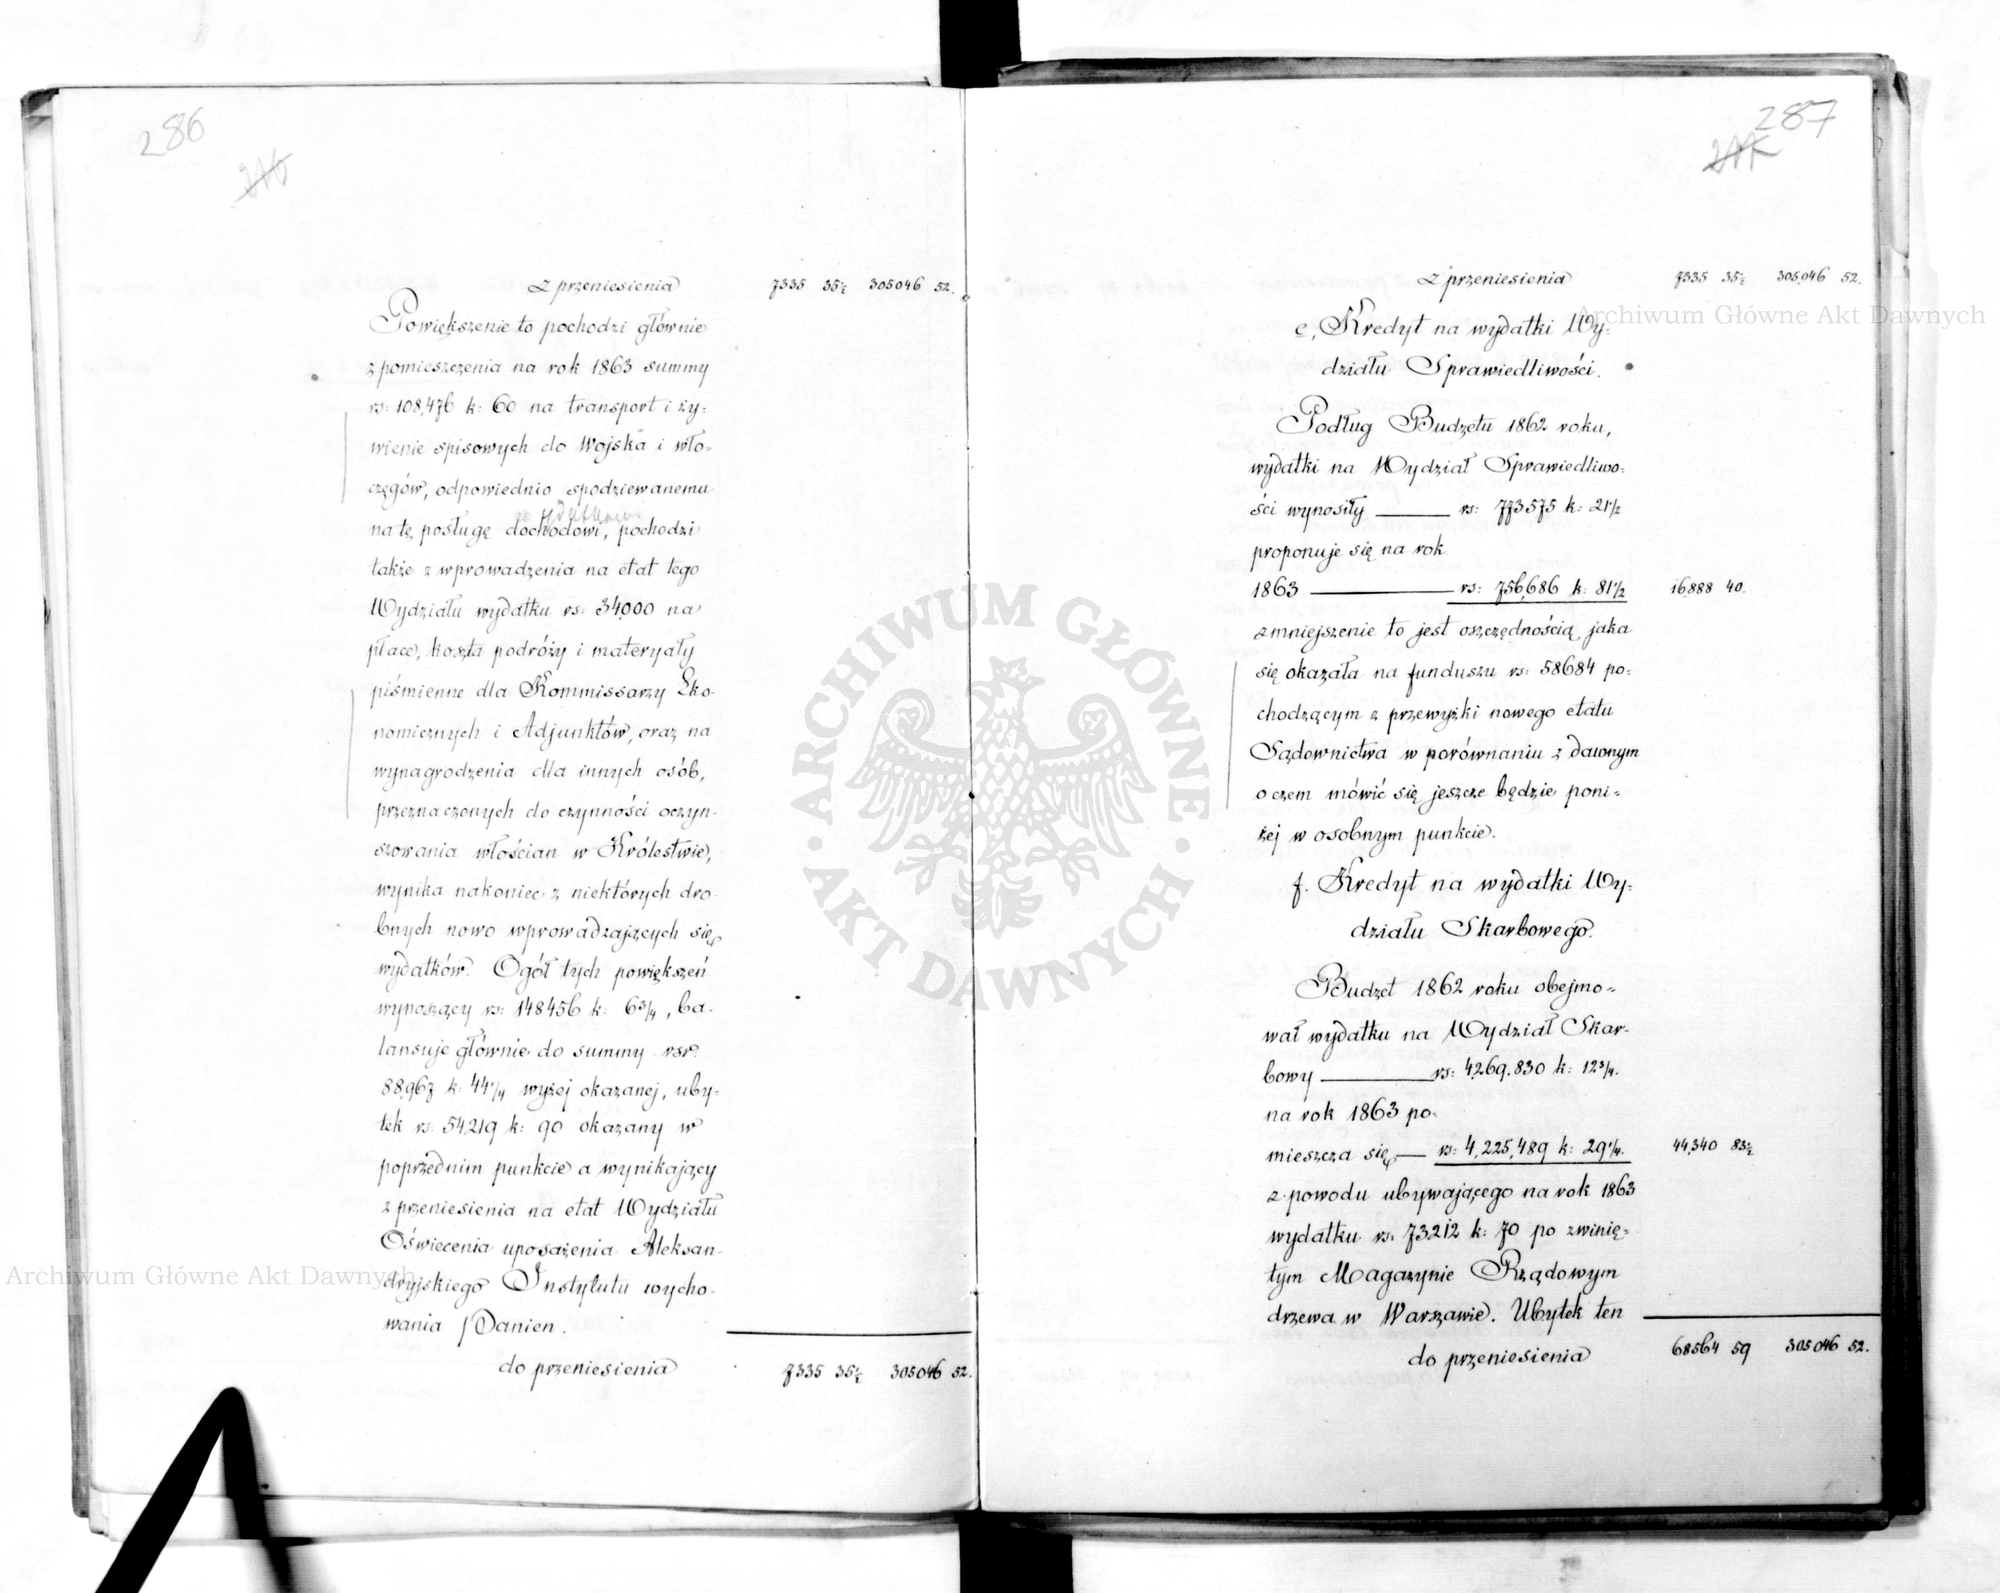 286
z przeniesienia 7335 35½ 305046 52.
Powiększenie to pochodzi głównie
z pomieszczenia na rok 1863 summy
rs: 108,476 k: 60 na transport i ży-
wienie spisowych do Wojska i włó-
częgów, odpowiednio spodziewanemu
na tę posługę dochodowi, pochodzi
także z wprowadzenia na etat tego
Wydziału wydatku rs: 34,000 na
płace, koszta podróży i materyały
piśmienne dla Kommissarzy Eko-
nomicznych i Adjunktów, oraz na
wynagrodzenia dla innych osób,
przeznaczonych do czynności oczyn-
szowania włościan w Królestwie,
wynika nakoniec z niektórych dro-
bnych nowo wprowadzających się
wydatków. Ogół tych powiększeń
wynoszący rs: 148456 k: 6¾, ba-
lansuje głównie do summy rsr:
88,967 k: 44¼ wyżej okazanej, uby-
tek rs: 54,219 k: 90 okazany w
poprzednim punkcie a wynikający
z przeniesienia na etat Wydziału
Oświecenia uposażenia Aleksan-
dryjskiego Instytutu wycho-
wania Panien.
do przeniesienia 7335 35½ 305046 52.
287
z przeniesienia 7335 35½ 305,046 52.
e, Kredyt na wydatki Wy-
działu Sprawiedliwości.
Podług Budżetu 1862 roku,
wydatki na Wydział Sprawiedliwo-
ści wynosiły rs: 773575 k: 21½
proponuje się na rok
1863 rs: 756,686 k: 81½ 16,888 40.
zmniejszenie to jest oszczędnością, jaka
się okazała na funduszu rs: 58684 po-
chodzącym z przewyżki nowego etatu
Sądownictwa w porównaniu z dawnym
o czem mówić się jeszcze będzie poni-
żej w osobnym punkcie.
f. Kredyt na wydatki Wy-
działu Skarbowego.
Budżet 1862 roku obejmo-
wał wydatku na Wydział Skar-
bowy rs: 4,269,830 k: 12¾.
na rok 1863 po-
mieszcza się rs: 4,225,489 k: 29¼. 44,340 83½
z powodu ubywającego na rok 1863
wydatku rs: 73212 k: 70 po zwinię-
tym Magazynie Rządowym
drzewa w Warszawie. Ubytek ten
do przeniesienia 68564 59 305046 52.
Archiwum Główne Akt Dawnych
Archiwum Główne Akt Dawnych
ARCHIWUM GŁÓWNE
AKT DAWNYCH